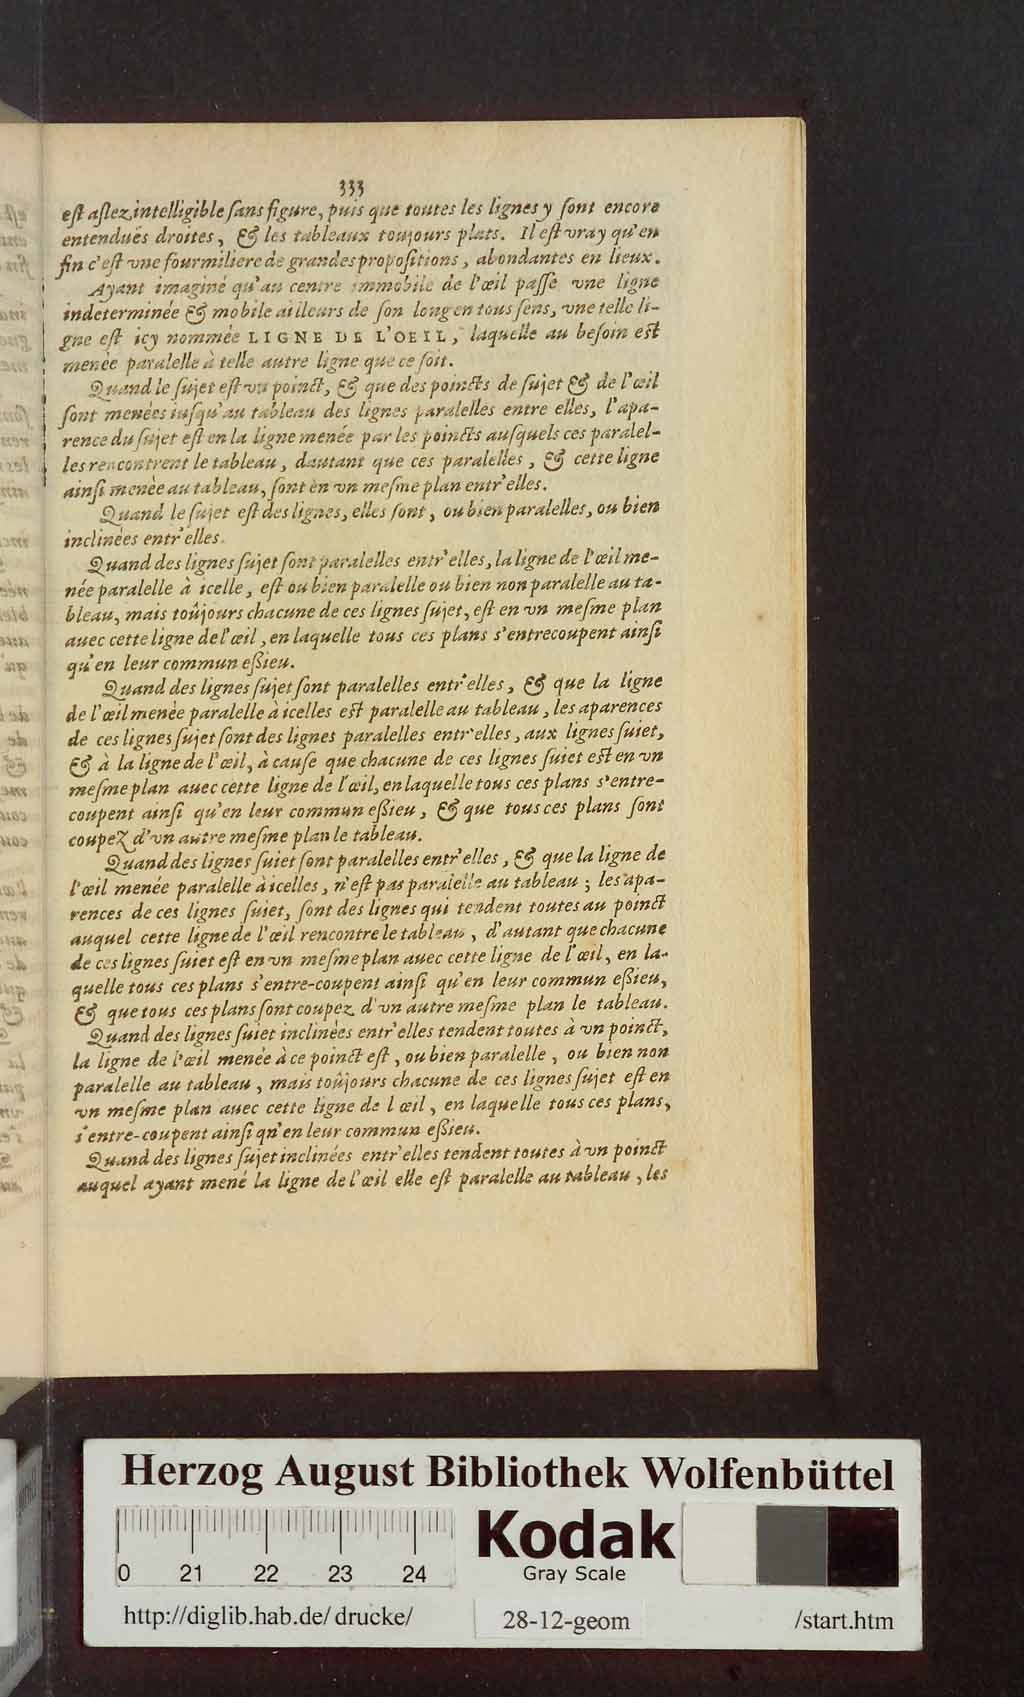 333
eſt aſſez intelligible ſans figure, puis que toutes les lignes y ſont encore
entenduës droites, & les tableaux toujours plats. Il eſt vray qu'en
fin c'eſt vne fourmiliere de grandes propoſitions, abondantes en lieux.
Ayant imaginé qu'au centre immobile de l'œil paſſe vne ligne
indeterminée & mobile ailleurs de ſon long en tous ſens, vne telle li-
gne eſt icy nommée LIGNE DE L'OEIL, laquelle au beſoin eſt
menée paralelle à telle autre ligne que ce ſoit.
Quand le ſujet eſt vn poinct, & que des poincts de ſujet & de l'œil
ſont menées iuſqu'au tableau des lignes paralelles entre elles, l'apa-
rence du ſujet eſt en la ligne menée par les poincts auſquels ces paralel-
les rencontrent le tableau, dautant que ces paralelles, & cette ligne
ainſi menée au tableau, ſont en vn meſme plan entr'elles.
Quand le ſujet eſt des lignes, elles ſont, ou bien paralelles, ou bien
inclinées entr'elles.
Quand des lignes ſujet ſont paralelles entr'elles, la ligne de l'œil me-
née paralelle à icelle, eſt ou bien paralelle ou bien non paralelle au ta-
bleau, mais toûjours chacune de ces lignes ſujet, eſt en vn meſme plan
auec cette ligne de l'œil, en laquelle tous ces plans s'entrecoupent ainſi
qu'en leur commun eſſieu.
Quand des lignes ſujet ſont paralelles entr'elles, & que la ligne
de l'œil menée paralelle à icelles eſt paralelle au tableau, les aparences
de ces lignes ſujet ſont des lignes paralelles entr'elles, aux lignes ſuiet,
& à la ligne de l'œil, à cauſe que chacune de ces lignes ſuiet eſt en vn
meſme plan auec cette ligne de l'œil, en laquelle tous ces plans s'entre-
coupent ainſi qu'en leur commun eſſieu, & que tous ces plans ſont
coupez d'vn autre meſme plan le tableau.
Quand des lignes ſuiet ſont paralelles entr'elles, & que la ligne de
l'œil menée paralelle à icelles, n'eſt pas paralelle au tableau; les apa-
rences de ces lignes ſuiet, ſont des lignes qui tendent toutes au poinct
auquel cette ligne de l'œil rencontre le tableau, d'autant que chacune
de ces lignes ſuiet eſt en vn meſme plan auec cette ligne de l'œil, en la-
quelle tous ces plans s'entre-coupent ainſi qu'en leur commun eſſieu,
& que tous ces plans ſont coupez d'vn autre meſme plan le tableau.
Quand des lignes ſuiet inclinées entr'elles tendent toutes à vn poinct,
la ligne de l'œil menée à ce poinct eſt, ou bien paralelle, ou bien non
paralelle au tableau, mais toûjours chacune de ces lignes ſujet eſt en
vn meſme plan auec cette ligne de l œil, en laquelle tous ces plans,
s'entre-coupent ainſi qn'en leur commun eſſieu.
Quand des lignes ſujet inclinées entr'elles tendent toutes à vn poinct
auquel ayant mené la ligne de l'œil elle eſt paralelle au tableau, les
Herzog August Bibliothek Wolfenbüttel
Kodak
Gray Scale
0 21 22 23 24
http://diglib.hab.de/drucke/ 28-12-geom /start.htm